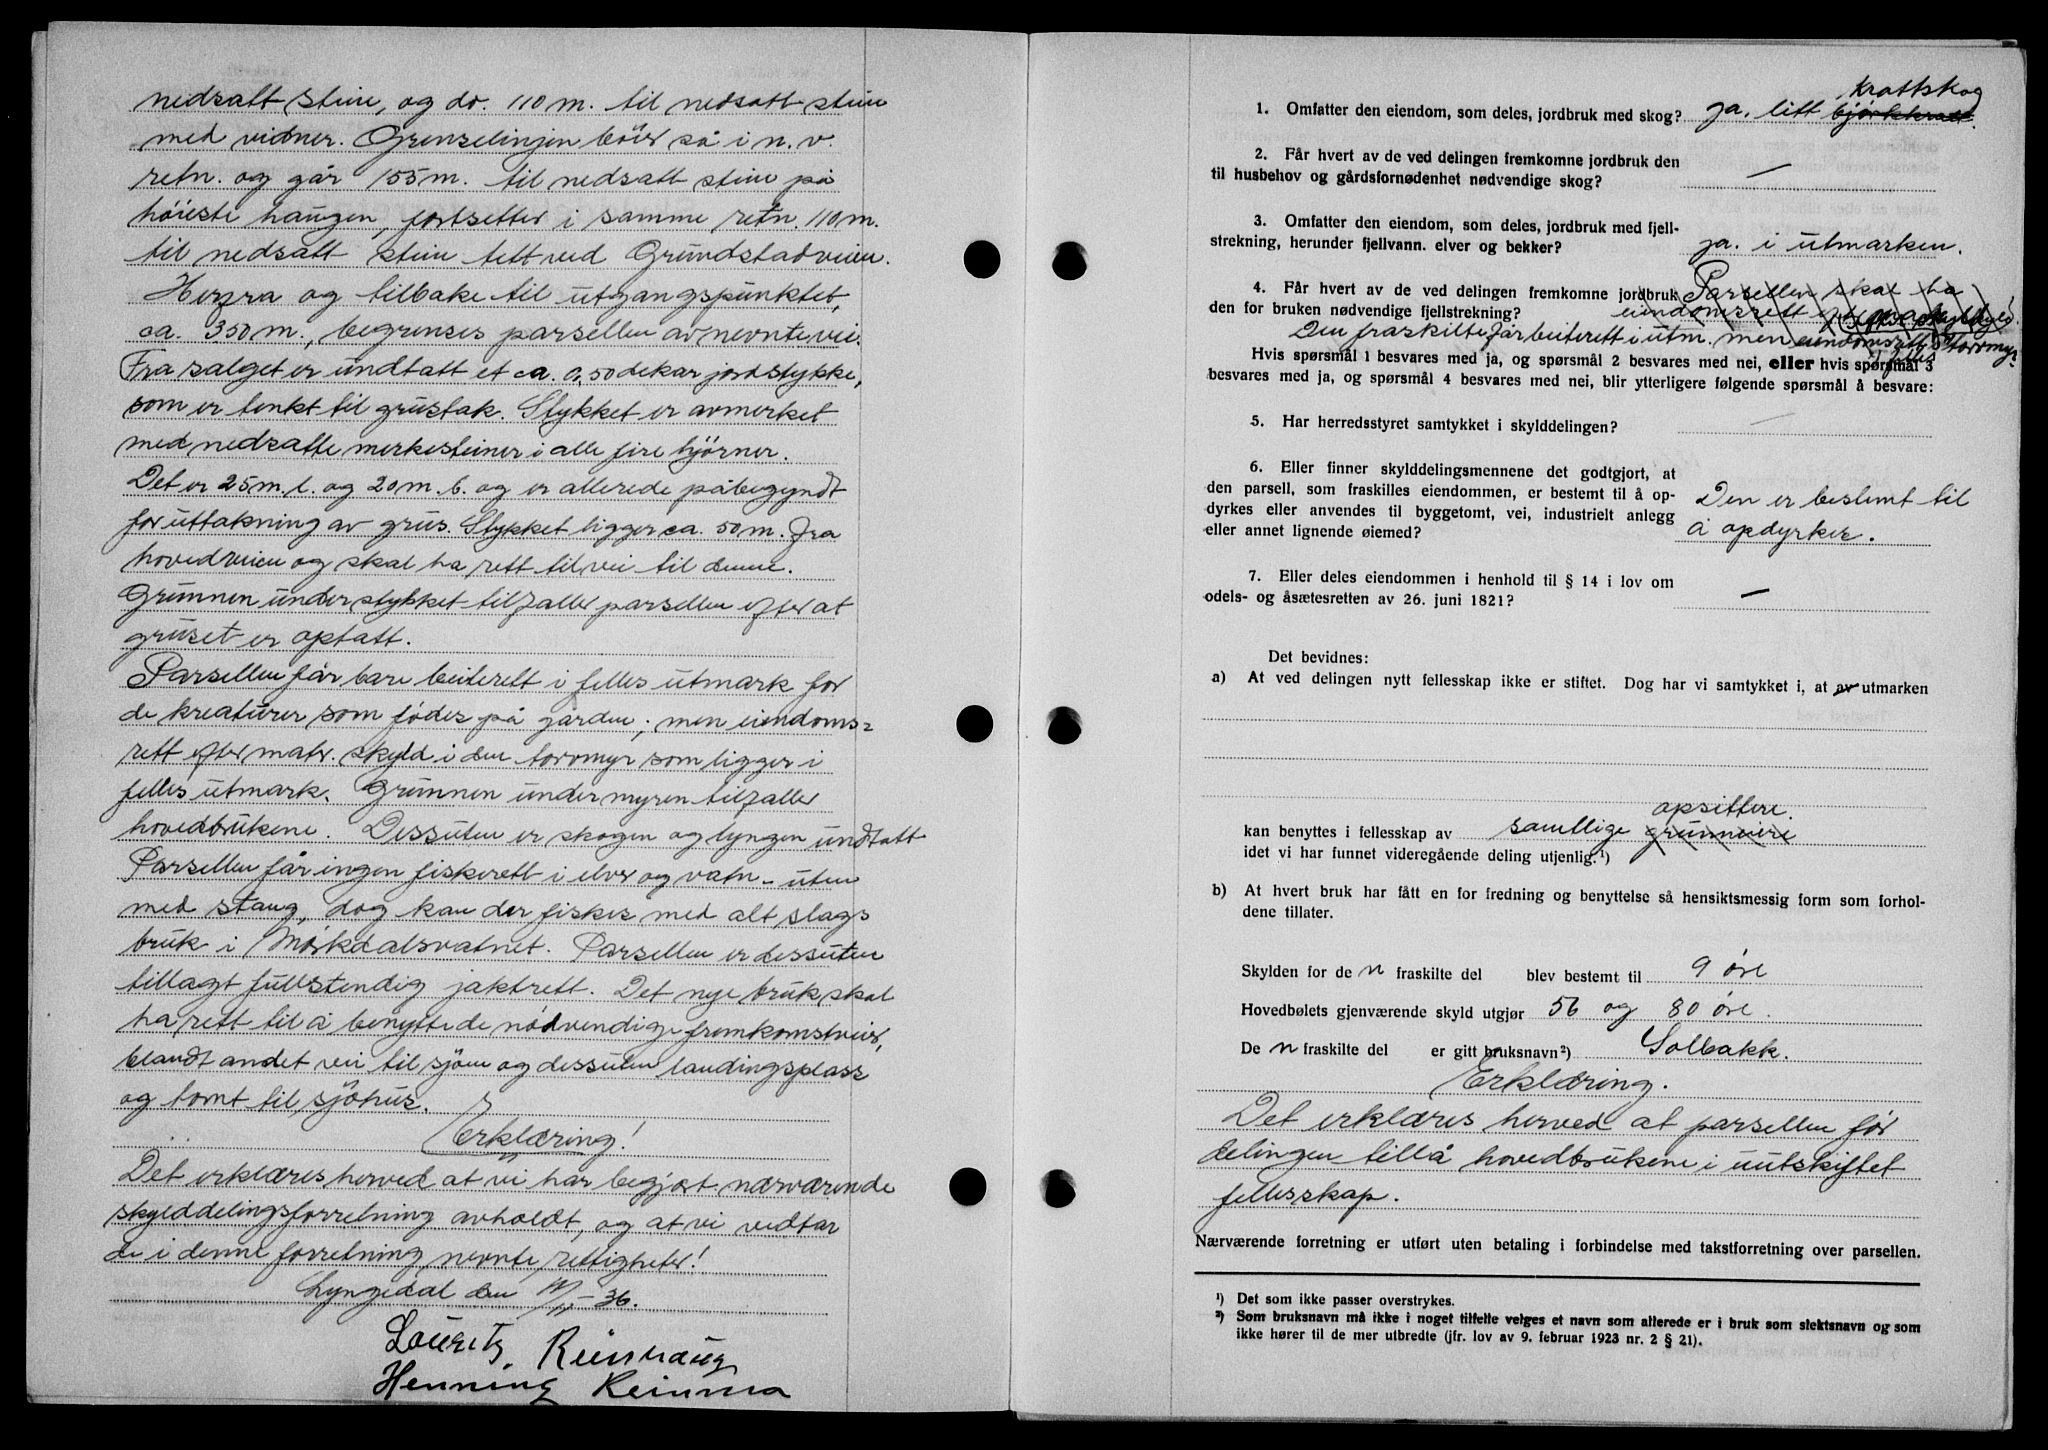 nedsatt stein, og do. 110 m. til nedsatt stein
med vidner. Grenselinjen böier så i n. v.
retn. og går 155 m. til nedsatt stein på
höieste haugen, fortsetter i samme retn. 110 m.
til nedsatt stein tett ved Grundstadveien.
Herfra og tilbake til utgangspunktet,
ca. 350 m., begrenses parsellen av nevnte vei.
Fra salget er undtatt et ca. 0,50 dekar jordstykke,
som er tenkt til grustak. Stykket er avmerket
med nedsatte merkesteiner i alle fire hjörner.
Det er 25 m. l. og 20 m. b. og er allerede påbegyndt
for uttakning av grus. Stykket ligger ca. 50 m. fra
hovedveien og skal ha rett til vei til denne.
Grunnen under stykket tilfaller parsellen efter at
gruset er optatt.
Parsellen får bare beiterett i felles utmark for
de kreaturer som födes på gården; men eiendoms=
rett efter matr. skyld i den torvmyr som ligger i
felles utmark. Grunnen under myren tilfaller
hovedbrukene. Dessuten er skogen og lyngen undtatt
Parsellen får ingen fiskerett i elver og vatn - uten
med stang, dog kan der fiskes med alt slags
bruk i Mörkdalsvatnet. Parsellen er dessuten
tillagt fullstendig jaktrett. Det nye bruk skal
ha rett til å benytte de nödvendige fremkomstveier,
blandt andet vei til sjöen og dessuten landingsplass
og tomt til sjöhus.
Erklæring!
Det erklæres herved at vi har begjært nærværende
skylddelingsforretning avholdt, og at vi vedtar
de i denne forretning nevnte rettigheter!
Lyngedal den -36.
Louritz Reinshaug
Henning
krattskog
1. Omfatter den eiendom, som deles, jordbruk med skog? ja. litt bjørkkratt.
2. Får hvert av de ved delingen fremkomne jordbruk den
til husbehov og gårdsfornødenhet nødvendige skog? —
3. Omfatter den eiendom, som deles, jordbruk med fjell-
strekning, herunder fjellvann. elver og bekker? ja. i utmarken.
4. Får hvert av de ved delingen fremkomne jordbruk Parsellen skal ha
den for bruken nødvendige fjellstrekning? eiendomsrett
Den fraskilte får beiterett i utm. men eiendomsrett i torvmyr.
Hvis spørsmål 1 besvares med ja, og spørsmål 2 besvares med nei, eller hvis spørsmål 3
besvares med ja, og spørsmål 4 besvares med nei, blir ytterligere følgende spørsmål å besvare:
5. Har herredsstyret samtykket i skylddelingen? —
6. Eller finner skylddelingsmennene det godtgjort, at
den parsell, som fraskilles eiendommen, er bestemt til å op-
dyrkes eller anvendes til byggetomt, vei, industrielt anlegg
eller annet lignende øiemed?
Den er bestemt til
å opdyrkes.
7. Eller deles eiendommen i henhold til § 14 i lov om
odels- og åsætesretten av 26. juni 1821? —
Det bevidnes:
a) At ved delingen nytt fellesskap ikke er stiftet. Dog har vi samtykket i, at av utmarken
opsittere.
kan benyttes i fellesskap av samtlige grunneiere
idet vi har funnet videregående deling utjenlig.¹)
b) At hvert bruk har fått en for fredning og benyttelse så hensiktsmessig form som forhol-
dene tillater.
Skylden for de n fraskilte del blev bestemt til 9 öre
Hovedbølets gjenværende skyld utgjør 56 og 80 öre.
De n fraskilte del er gitt bruksnavn²) Solbakk.
Erklæring.
Det erklæres herved at parsellen för
delingen tillå hovedbrukene i uutskiftet
fellesskap.
Nærværende forretning er utført uten betaling i forbindelse med takstforretning over parsellen.
¹) Det som ikke passer overstrykes.
²) Som bruksnavn må ikke i noget tilfelle velges et navn som allerede er i bruk som slektsnavn og som
ikke hører til de mer utbredte (jfr. lov av 9. februar 1923 nr. 2 § 21).